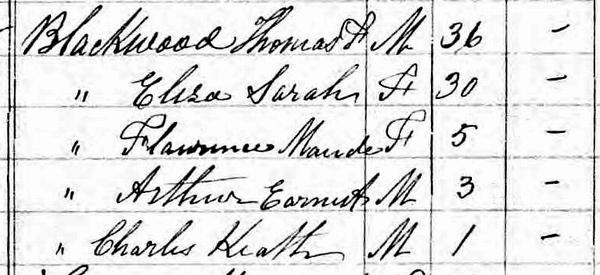 Blackwood Thomas F M 36 –
" Eliza Sarah F 30 –
" Flawrence Maude F 5 –
" Arthur Earnest M 3 –
" Charles Keath M 1 –